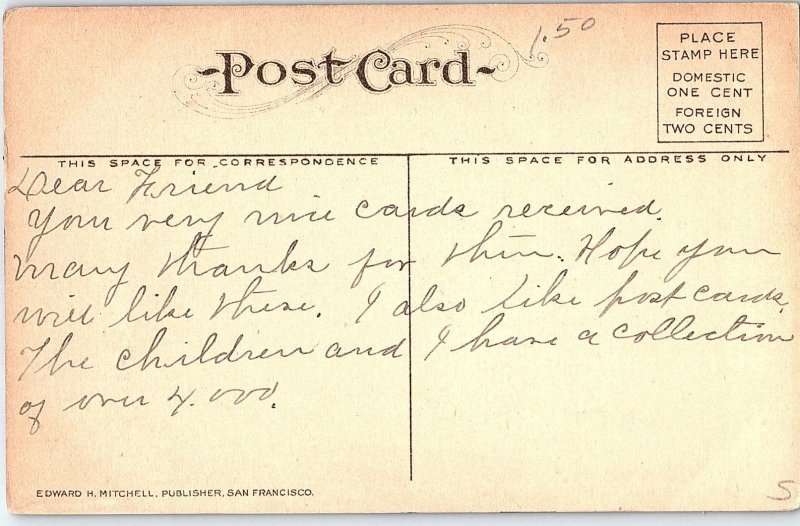 1.50
Post Card
PLACE
STAMP HERE
DOMESTIC
ONE CENT
FOREIGN
TWO CENTS
THIS SPACE FOR CORRESPONDENCE
THIS SPACE FOR ADDRESS ONLY
Dear Friend
Your very nice cards received.
many thanks for them. Hope you
will like these. I also like post cards.
The children and I have a collection
of over 4.000.
EDWARD H. MITCHELL, PUBLISHER, SAN FRANCISCO.
S